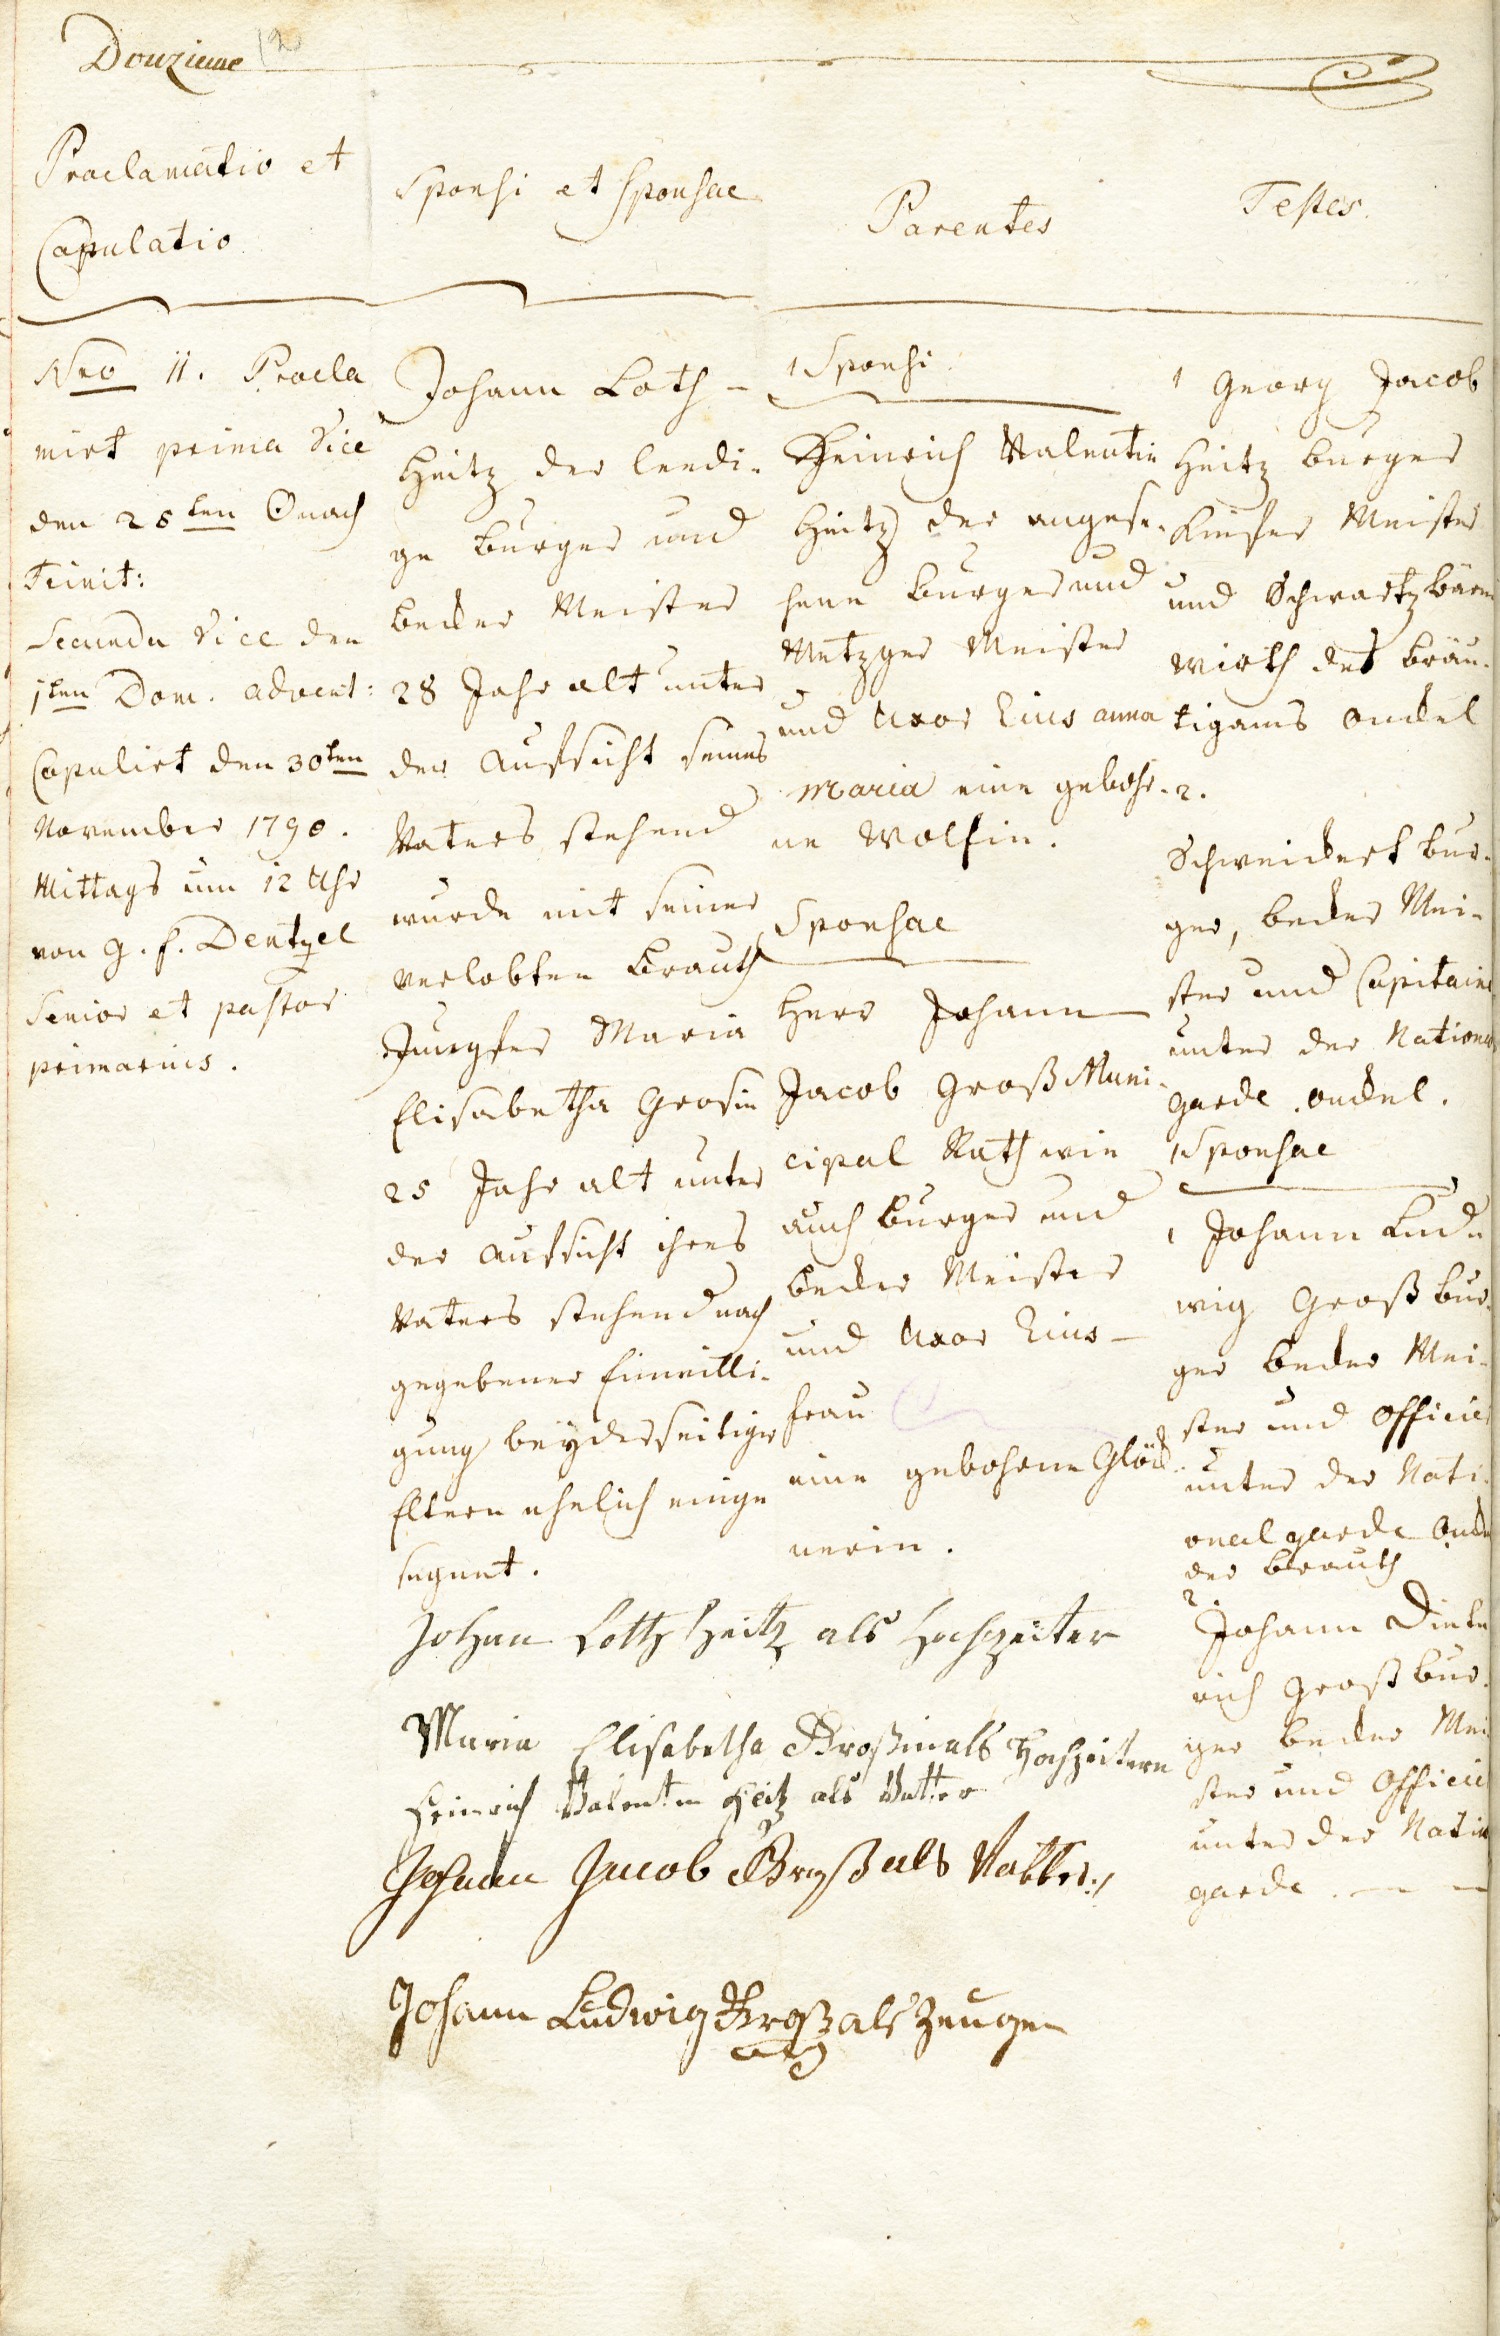 Douzieme 12
Proclamatio et
Copulatio
Nro 11. Procla
mirt prima vice
den 25ten Ꝋnach
Trinit:
Secunda vice den
1ten Dom. advent:
Copulirt den 30ten
November 1790.
Mittags um 12 Uhr
von G. f. Dentzel
Senior et pastor
primarius.
Sponsi et Sponsae
Johann Loth -
Heitz der leedi-
ge burger und
becker Meister
28 Jahr alt unter
der Aufsicht seines
Vaters stehend
wurde mit seiner
verlobten Brauth
Jungfer Maria
Elisabetha Grosin
25 Jahr alt unter
der Aufsicht ihres
Vaters stehend nach
gegebener Einwilli-
gung beyderseitiger
Eltern ehelich einge
segnet.
Parentes
Sponsi
Heinrich Valentin
Heitz der angese-
hene burger und
Metzger Meister
und Uxor Eius anna
Maria eine gebohr-
ne Wolfin.
Sponsae
Herr Johann
Jacob Groß Muni-
cipal Rath wie
auch burger und
becker Meister
und Uxor Eius -
frau
eine gebohrne Glöck
nerin.
Testes
1 Georg Jacob
Heitz burger
Kiefer Meister
und Schwartzbären
wirth des bräu-
tigams onckel
2.
Schweickert bur-
ger, becker Mei-
ster und Capitaine
unter der Nationa
garde. onckel.
Sponsae
1 Johann Lud-
wig Groß bur-
ger becker Mei-
ster und Officier
unter der Nati-
onal garde Onkel
der brauth
2.
Johann Diete
rich Groß bur-
ger becker Mei
ster und Officie
unter der Natio
garde. - -
Johan Loth Heitz als Hochzeiter
Maria Elisabetha Großin als Hochzeitern
Heinrich Valentin Heitz als Vatter
Johann Jacob Groß als Vatter
Johann Ludwig Groß als Zeugen